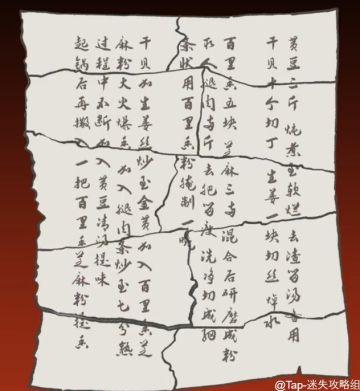 黄豆三斤 炖煮至软烂 去渣留汤备用
干贝十个切丁 生姜一块切丝 焯水
百里香五块 芝麻三勺 混合后研磨成粉
腿肉去把留 洗净切成细
条状用百里香粉腌制一晚
干贝加生姜丝炒至金黄加入百里香芝
麻粉大火爆香加入腿肉条炒至七分熟
过程中不断加入黄豆清汤提味
起锅后再撒一把百里香芝麻粉提香
@Tap-迷失攻略组